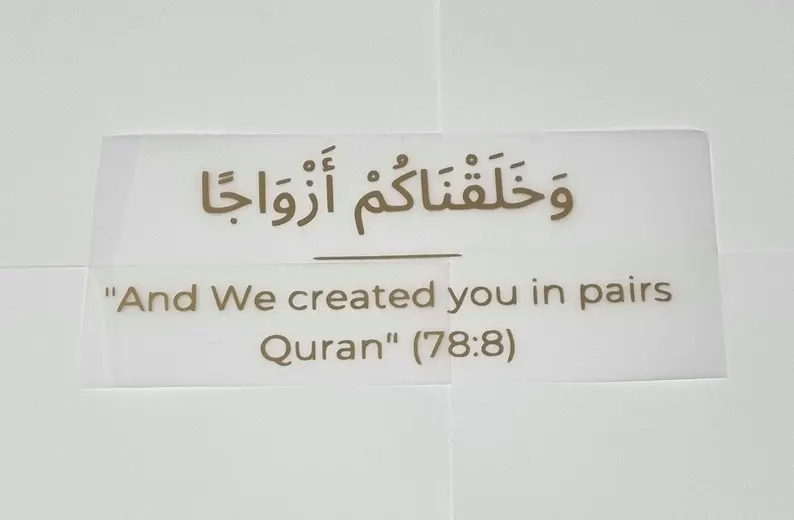 وَخَلَقْنَاكُمْ أَزْوَاجًا
"And We created you in pairs
Quran" (78:8)